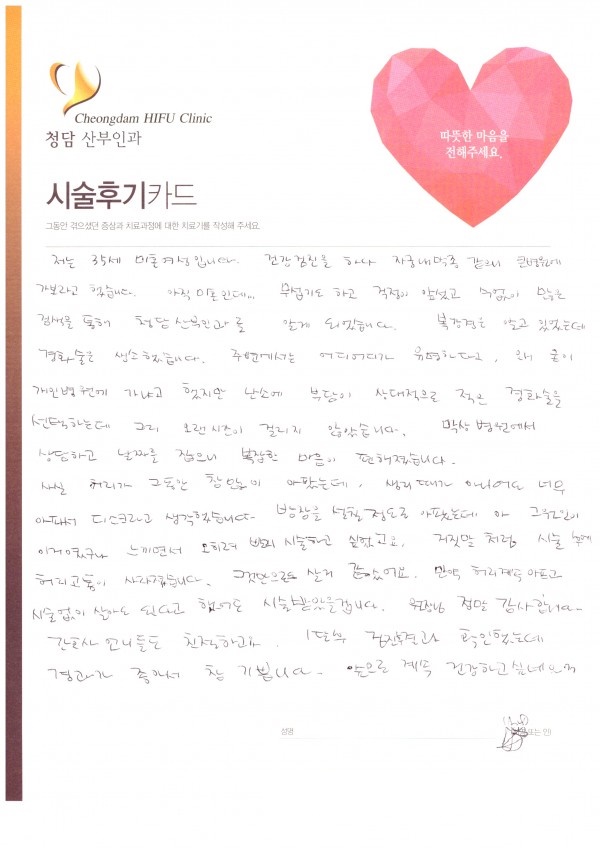 Cheongdam HIFU Clinic
청담 산부인과
따뜻한 마음을
전해주세요.
시술후기카드
그동안 겪으셨던 증상과 치료과정에 대한 치료기를 작성해 주세요.
저는 35세 미혼여성입니다. 건강검진을 하다 자궁내막종 같으니 큰병원에
가보라고 했습니다. 아직 미혼인데... 무섭기도 하고 걱정이 앞섰고 수없이 많은
검색을 통해 청담산부인과를 알게 되었습니다. 복강경은 알고 있었는데
경화술은 생소했습니다. 주변에서는 어디어디가 유명하다고, 왜 굳이
개인병원에 가냐고 했지만 난소에 부담이 상대적으로 적은 경화술을
선택하는데 그리 오랜시간이 걸리지 않았습니다. 막상 병원에서
상담하고 날짜를 잡으니 복잡한 마음이 편해졌습니다.
사실 허리가 그동안 참 많이 아팠는데, 생리때가 아니어도 너무
아파서 디스크라고 생각했습니다. 방장을 설칠 정도로 아팠는데 아 그원인이
이거였구나 느끼면서 오히려 빨리 시술하고 싶었고요. 거짓말처럼 시술 후에
허리고통이 사라졌습니다. 그것만으로도 살거 같았어요. 만약 허리계속 아프고
시술없이 살아도 된다고 했어도 시술받았을겁니다. 원장님 정말 감사합니다
간호사 언니들도 친절하고. 1달후 검진결과 확인했는데
경과가 좋아서 참 기쁩니다. 앞으로 계속 건강하고싶네요
성명
또는 인)